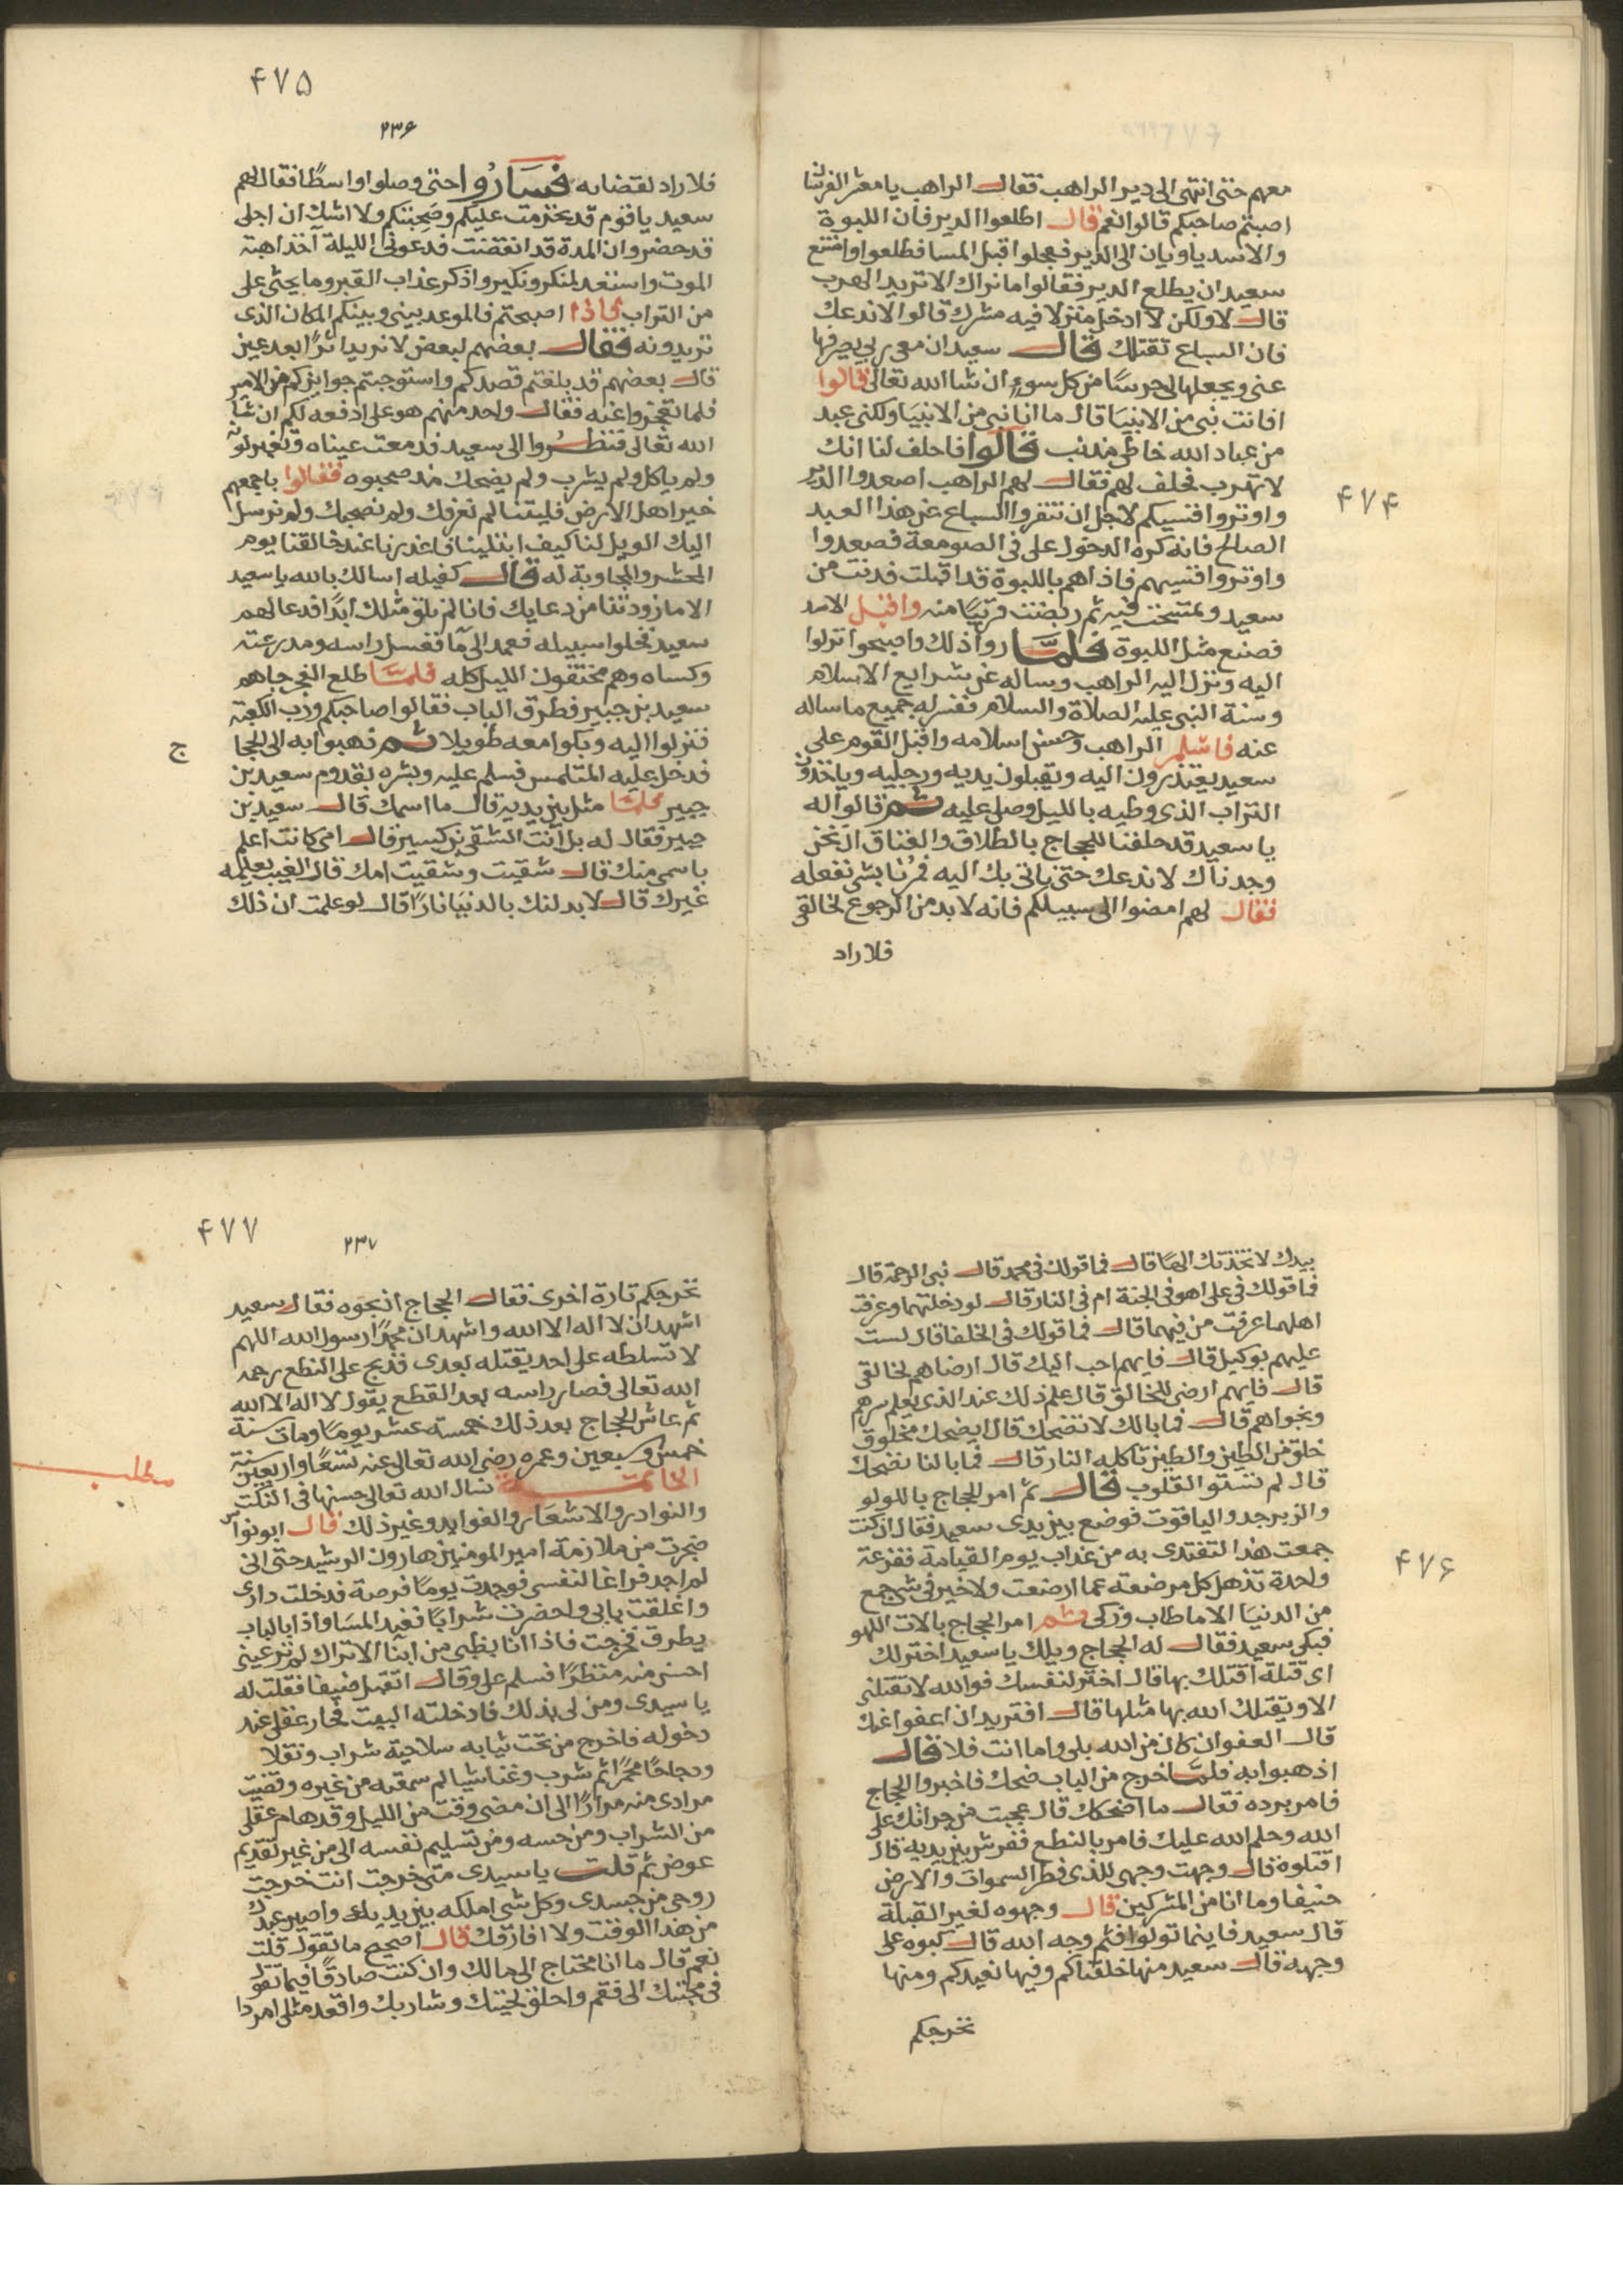 معهم حتى انتهى الى دير الراهب فقال الراهب يا معشر الفرسان
اصبتم صاحبكم قالوا نعم قال اطلعوا الدير فان اللبوة
والاسد ياويان الى الدير فعجلوا قبل المسا فطلعوا وامتنع
سعيد ان يطلع الدير فقالوا ما نراك الا تريد الهرب
قال لا ولكن لا ادخل منزلا فيه مشرك قالوا لا ندعك
فان السباع تقتلك قال سعيد ان معى ربى يصرفها
عنى ويجعلها لى حرسًا من كل سوء ان شا الله تعالى قالوا
افانت نبى من الانبيا قال ما انا نبى من الانبيا ولكنى عبد
من عباد الله خاطى مذنب قالوا فاحلف لنا انك
لا تهرب فحلف لهم فقال لهم الراهب اصعدوا الدير
واوتروا قسيكم لاجل ان تنفروا السباع عن هذا العبد
الصالح فانه كره الدخول على فى الصومعة فصعدوا
واوتروا قسيهم فاذا هم باللبوة قد اقبلت فدنت من
سعيد وتمسحت فيه ثم ربضت قريبًا منه واقبل الاسد
فصنع مثل اللبوة فلما راوا ذلك واصبحوا نزلوا
اليه ونزل اليه الراهب وساله عن شرايع الاسلام
وسنة النبى عليه الصلاة والسلام ففسر له جميع ما ساله
عنه فاسلم الراهب وحسن اسلامه واقبل القوم على
سعيد يعتذرون اليه ويقبلون يديه ورجليه وياخذون
التراب الذى وطيه بالليل وصلى عليه ثم قالوا له
يا سعيد قد حلفنا للحجاج بالطلاق والعتاق ان نحن
وجدناك لا ندعك حتى ياتى بك اليه فمرنا بشى نفعله
فقال لهم امضوا الى سبيلكم فانه لا بد من الرجوع لخالقى
فلا راد
۴۷۴
۴۷۵
۲۳۶
فلا راد لقضايه فساروا حتى وصلوا واسطًا فقال لهم
سعيد يا قوم قد تحرمت عليكم وصحبتكم ولا اشك ان اجلى
قد حضر وان المدة قد انقضت فدعونى الليلة آخذ اهبة
الموت واستعد لمنكر ونكير واذكر عذاب القبر وما يحثى على
من التراب فاذا اصبحتم فالموعد بينى وبينكم المكان الذى
تريدونه فقال بعضهم لبعض لا نريد اثرًا بعد عين
قال بعضهم قد بلغتم قصدكم واستوجبتم جوايزكم من الامير
فلا تعجزوا عنه فقال واحد منهم هو على ادفعه لكم ان شا
الله تعالى فنظروا الى سعيد قد دمعت عيناه وتغير لونه
ولم ياكل ولم يشرب ولم يضحك منذ صحبوه فقالوا باجمعهم
خير اهل الارض فليتنا لم نعرفك ولم نصحبك ولم نرسل
اليك الويل لنا كيف ابتلينا فاعذرنا عند خالقنا يوم
المحشر والمجاوبة له قال كفيله اسالك بالله يا سعيد
الا ما زودتنا من دعايك فانا لم نلق مثلك ابدًا فدعا لهم
سعيد فخلوا سبيله فعمد الى ما فغسل راسه ومدرعته
وكساه وهم مختفون الليل كله فلما طلع الفجر جاهم
سعيد بن جبير فطرق الباب فقالوا صاحبكم ورب الكعبة
فنزلوا اليه وبكوا معه طويلا ثم ذهبوا به الى الحجا
ج
فدخل عليه المتلمس فسلم عليه وبشره بقدوم سعيد بن
جبير فلما مثل بين يديه قال ما اسمك قال سعيد بن
جبير فقال له بل انت الشقى بن كسير قال امى كانت اعلم
باسمى منك قال شقيت وشقيت امك قال الغيب يعلمه
غيرك قال لابدلنك بالدنيا نارًا قال لو علمت ان ذلك
بيدك لاتخذتك الهًا قال فما قولك فى محمد قال نبى الرحمة قال
فما قولك فى على اهو فى الجنة ام فى النار قال لو دخلتهما وعرفت
اهلهما عرفت من فيهما قال فما قولك فى الخلفا قال لست
عليهم بوكيل قال فايهم احب اليك قال ارضاهم لخالقى
قال فايهم ارضى للخالق قال علم ذلك عند الذى يعلم سرهم
ونجواهم قال فما بالك لا تضحك قال ايضحك مخلوق
خلق من الطين والطين تاكله النار قال فما بالنا نضحك
قال لم تستو القلوب قال ثم امر الحجاج باللولو
والزبرجد والياقوت فوضع بين يدى سعيد فقال ان كنت
جمعت هذا لتفتدى به من عذاب يوم القيامة ففزعة
واحدة تذهل كل مرضعة عما ارضعت ولا خير فى شى جمع
من الدنيا الا ما طاب وزكى ثم امر الحجاج بالات اللهو
فبكى سعيد فقال له الحجاج ويلك يا سعيد اختر لك
اى قتلة اقتلك بها قال اختر لنفسك فوالله لا تقتلنى
الا ويقتلك الله بها مثلها قال افتريد ان اعفو عنك
قال العفو ان كان من الله بلى واما انت فلا قال
اذهبوا به فلما خرج من الباب ضحك فاخبروا الحجاج
فامر برده فقال ما اضحكك قال عجبت من جراتك على
الله وحلم الله عليك فامر بالنطع ففرش بين يديه قال
اقتلوه قال وجهت وجهى للذى فطر السموات والارض
حنيفا وما انا من المشركين قال وجهوه لغير القبلة
قال سعيد فاينما تولوا فثم وجه الله قال كبوه على
وجهه قال سعيد منها خلقناكم وفيها نعيدكم ومنها
نخرجكم
۴۷۶
۴۷۷
۲۳۷
نخرجكم تارة اخرى فقال الحجاج اذبحوه فقال سعيد
اشهد ان لا اله الا الله واشهد ان محمدًا رسول الله اللهم
لا تسلطه على احد يقتله بعدى فذبح على النطع رحمه
الله تعالى فصار راسه بعد القطع يقول لا اله الا الله
ثم عاش الحجاج بعد ذلك خمسة عشر يومًا ومات سنة
خمس وسبعين وعمره رضى الله تعالى عنه تسعًا واربعين سنة
الخاتمة نسال الله تعالى حسنها فى النكت
مطلب
والنوادر والاشعار والفوايد وغير ذلك قال ابو نواس
ضجرت من ملازمة امير المومنين هارون الرشيد حتى انى
لم اجد فراغا لنفسى فوجدت يومًا فرصة فدخلت دارى
واغلقت بابى واحضرت شرابًا فعند المسا واذا بالباب
يطرق فخرجت فاذا انا بظبى من ابنا الاتراك لم تر عينى
احسن منه منظرًا فسلم على وقال اتقبل ضيفا فقلت له
يا سيدى ومن لى بذلك فادخلته البيت فحار عقلى عند
دخوله فاخرج من تحت ثيابه سلاحية شراب ونقلا
ودجاجًا محمرًا ثم شرب وغنا شيا لم سمعته من غيره وقضيت
مرادى منه مرارًا الى ان مضى وقت من الليل وقد هام عقلى
من الشراب ومن حسه ومن تسليم نفسه الى من غير تقديم
عوض ثم قلت يا سيدى متى خرجت انت خرجت
روحى من جسدى وكل شى املكه بين يديك واصير عبدك
من هذا الوقت ولا افارقك قال اصحيح ما تقول قلت
نعم قال ما انا محتاج الى مالك وان كنت صادقًا فيما تقول
فى محبتك الى فقم واحلق لحيتك وشاربك واقعد مثلى امردا